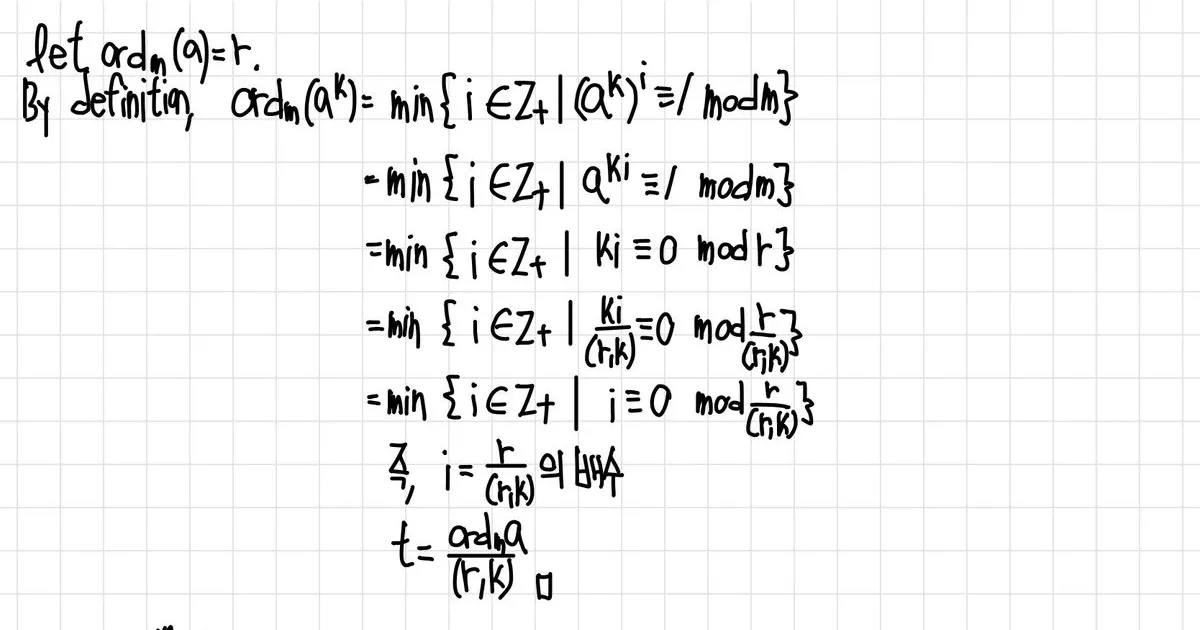 let ordₘ(a)=r.
By definition, ordₘ(aᵏ)= min{ i ∈ Z₊ | (aᵏ)ⁱ ≡ 1 mod m}
= min { i ∈ Z₊ | aᵏⁱ ≡ 1 mod m}
= min { i ∈ Z₊ | ki ≡ 0 mod r}
= min { i ∈ Z₊ | ki/(r,k) ≡ 0 mod r/(r,k)}
= min { i ∈ Z₊ | i ≡ 0 mod r/(r,k)}
즉, i = r/(r,k) 의 배수
t = ordₘa/(r,k) □